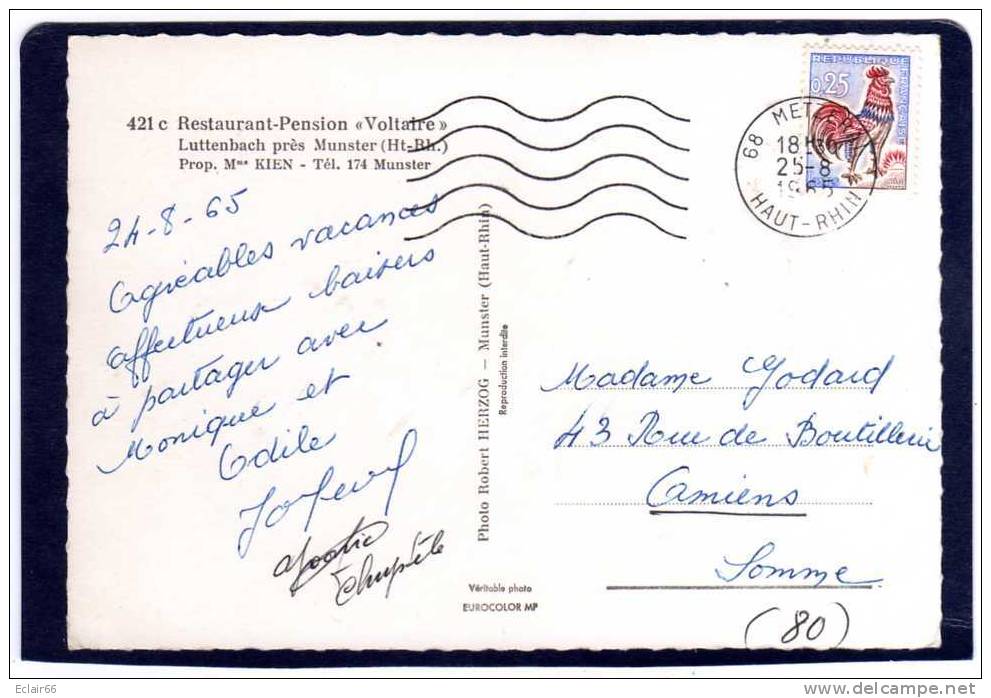 421 c Restaurant-Pension «Voltaire»
Luttenbach près Munster (Ht-Rh.)
Prop. Mme KIEN - Tél. 174 Munster
24-8-65
Agréables vacances
affectueux baisers
à partager avec
Monique et
Odile
Photo Robert HERZOG — Munster (Haut-Rhin)
Reproduction interdite
Véritable photo
EUROCOLOR MP
REPUBLIQUE FRANÇAISE
0,25
68
18H30
25-8
1965
HAUT-RHIN
Madame Godard
43 Rue de Boutillerie
Amiens
Somme
(80)
Eclair66
www.delcampe.net